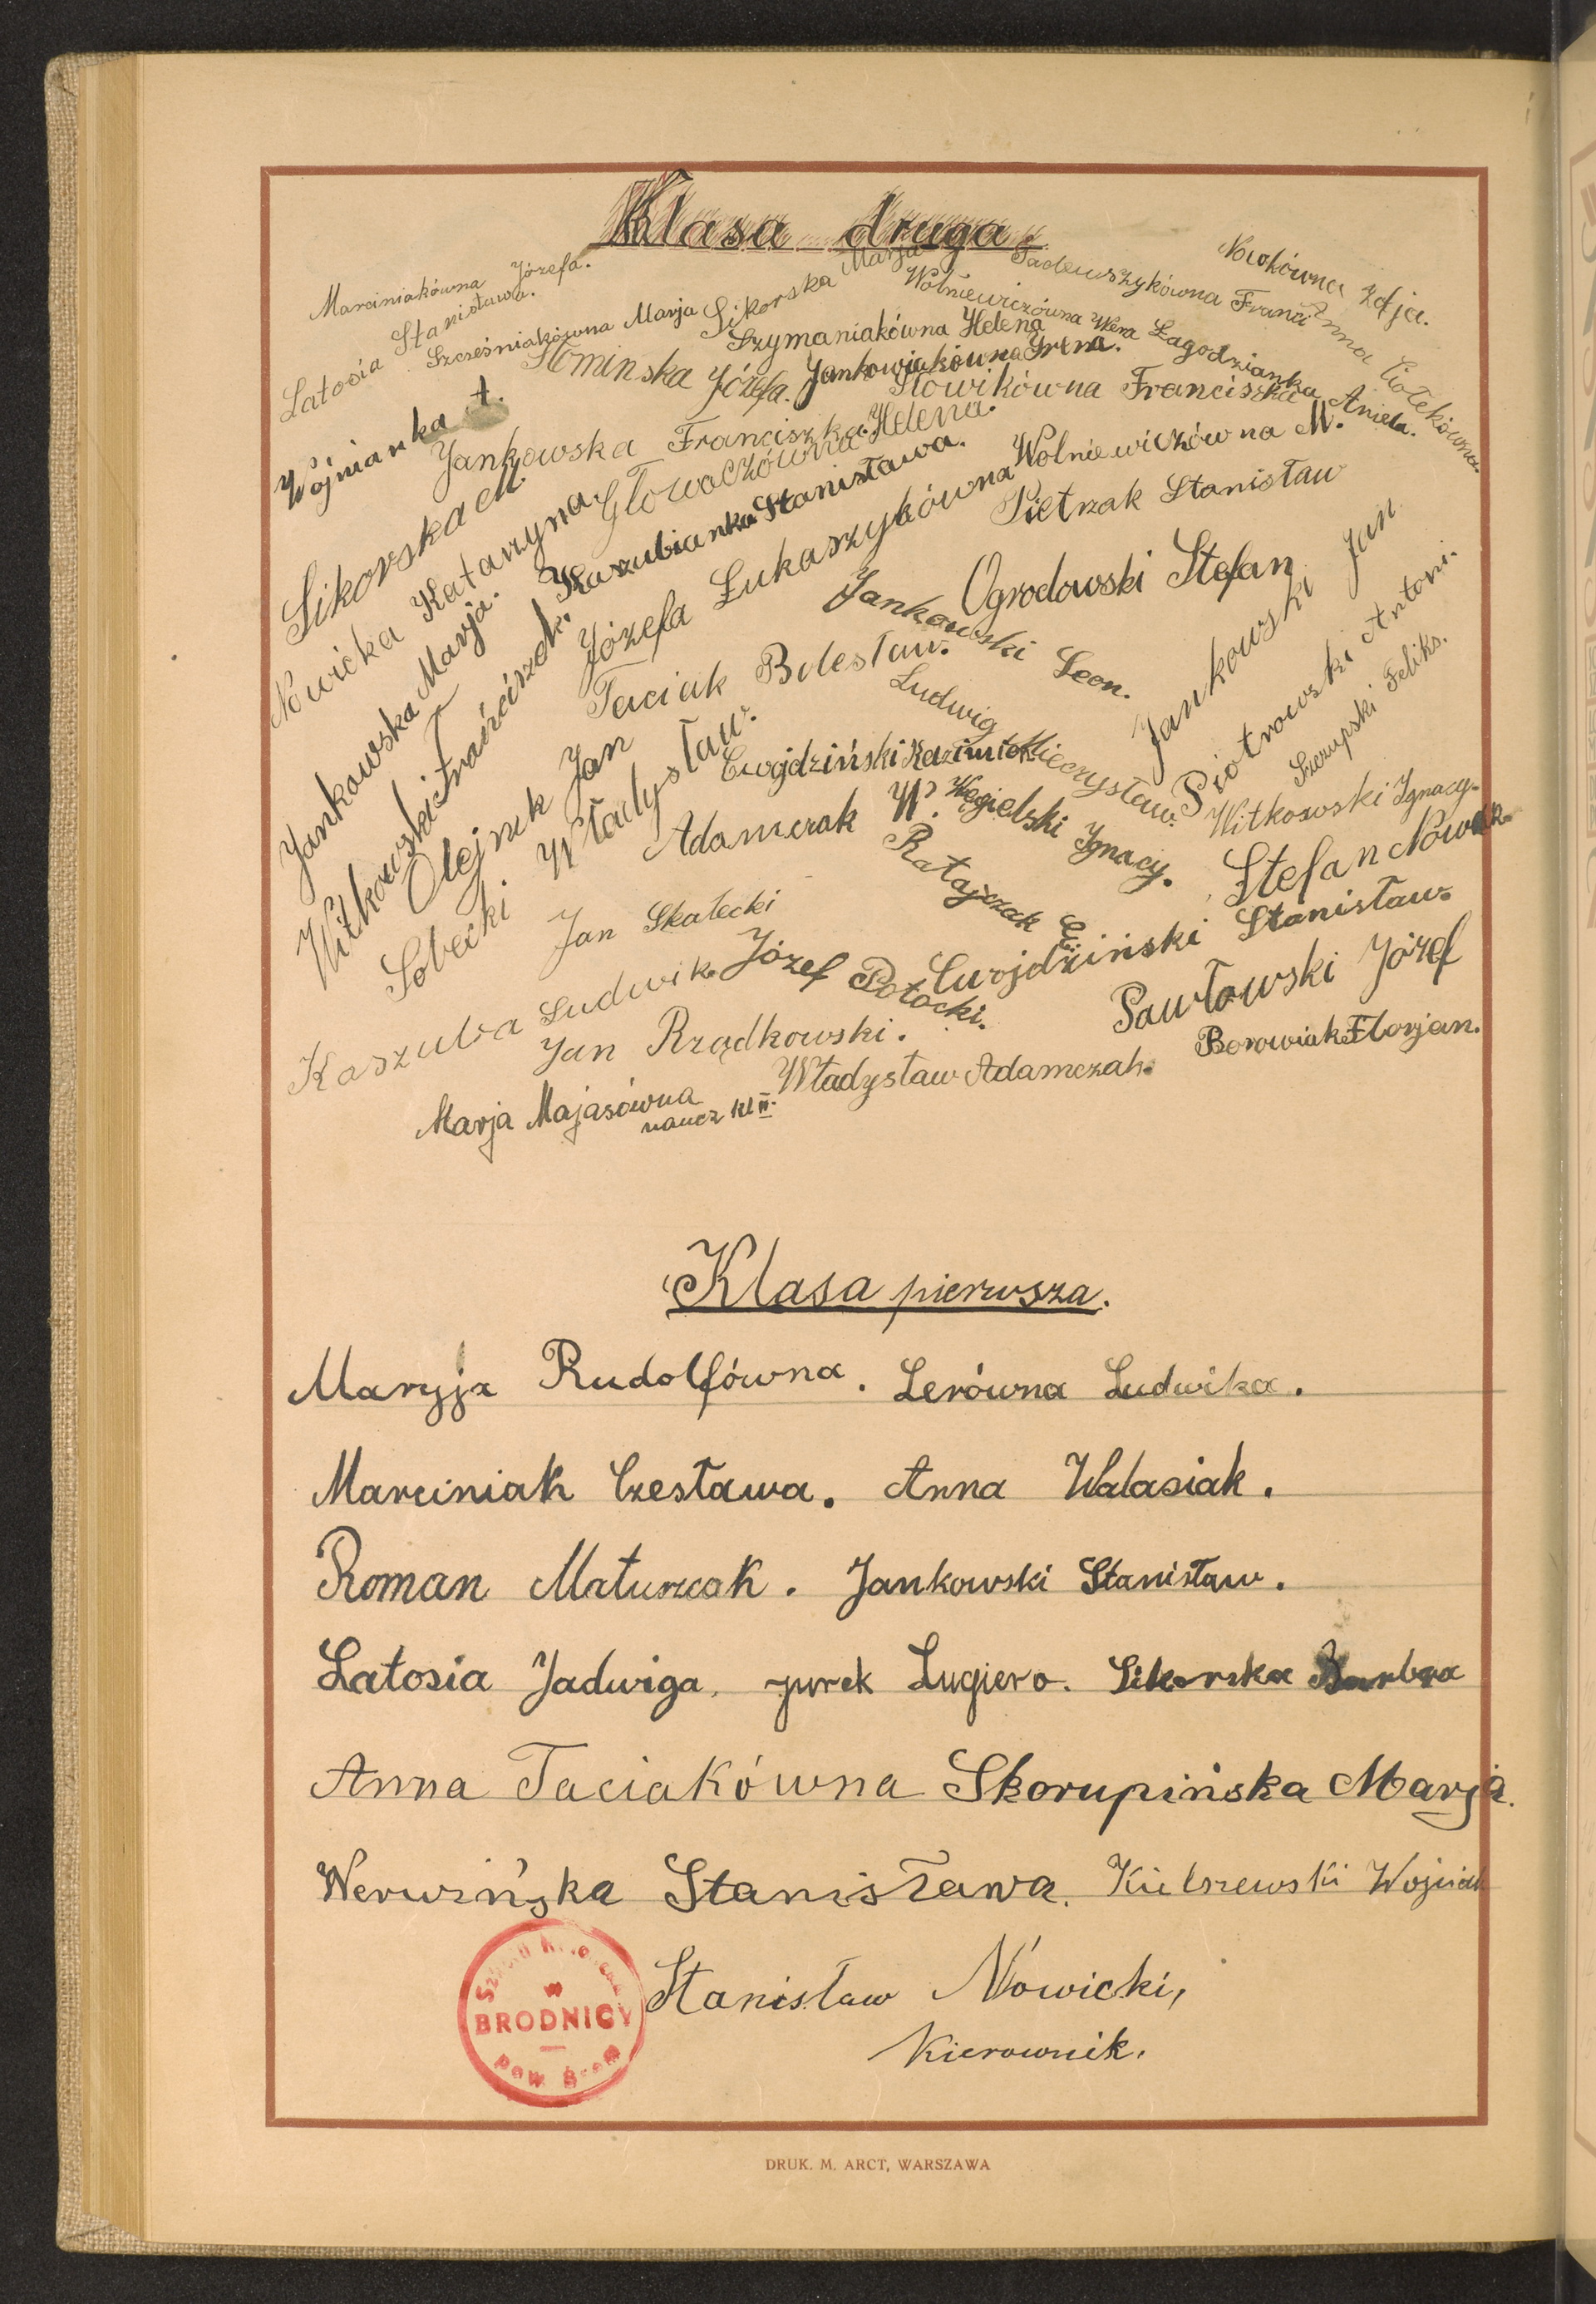 Klasa druga.
Marciniakówna Józefa.
Latosia Stanisława.
Szcześniakówna Marja
Sikorska Marja
Tadeuszykówna Franci
Nowakówna Zofja.
Wolniewiczówna Wera
Anna Ciołekówna
Szymaniakówna Helena
Łagodzianka Aniela.
Słominska Józefa.
Jankowiakówna Irena.
Słowikówna Franciszka
Wojnianka A.
Jankowska Franciszka
Głowaczówna Helena.
Wolniewiczówna M.
Sikorska M.
Kaszubianka Stanisława.
Pietrzak Stanisław
Nowicka Katarzyna
Józefa Łukaszykówna
Ogrodowski Stefan
Jankowski Jan
Jankowska Marja.
Jankowski Leon.
Piotrowski Antoni.
Witkowski Franciszek.
Taciak Bolesław.
Ludwig Mieczysław.
Szczupski Feliks.
Olejnik Jan
Cwojdziński Kazimierz
Witkowski Ignacy.
Sobecki Władysław.
Adamczak W.
Węgielski Ignacy.
Stefan Nowak
Ratajczak
Jan Skałecki
Cwojdziński Stanisław.
Kaszuba Ludwik.
Józef Potocki.
Pawłowski Józef
Jan Rządkowski.
Borowiak Florjan.
Władysław Adamczak.
Marja Majasówna
naucz kl II.
Klasa pierwsza.
Maryja Rudolfówna. Lerówna Ludwika.
Marciniak Czesława. Anna Walasiak.
Roman Matuszcak. Jankowski Stanisław.
Latosia Jadwiga, jurek Lugiero. Sikorska Barbra
Anna Taciakówna Skorupińska Marja.
Werwińska Stanisława. Kielszewski Wojciech
w
BRODNICY
pow. Śrem
Stanisław Nowicki,
Kierownik.
DRUK. M. ARCT, WARSZAWA